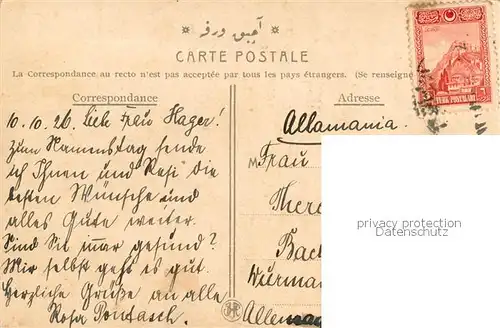 آچیق ورقه
CARTE POSTALE
La Correspondance au recto n'est pas acceptée par tous les pays étrangers. (Se renseigne
Correspondance
Adresse
10.10.26. Liebe Frau Hager.
Zum Namenstag sende
ich Ihnen und Resi die
besten Wünsche und
alles Gute weiter.
Sind Sie immer gesund?
Mir selbst geht es gut.
Herzliche Grüße an alle
Rosa
Allamania.
M Frau
There
Wurman
Allema
TURK POSTALARI
6
privacy protection
Datenschutz